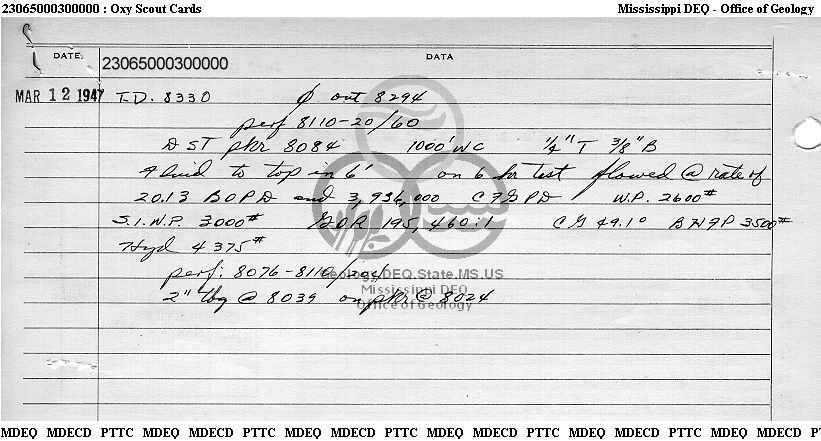 23065000300000 : Oxy Scout Cards Mississippi DEQ - Office of Geology
DATE DATA
23065000300000
MAR 12 1947 T.D. 8330 Ø out 8294
perf 8110-20/60
DST pkr 8084 1000' WC 1/4" T 3/8" B
Fluid to top in 6' on 6 hr test flowed @ rate of
20.13 BOPD and 3,936,000 CFGPD W.P. 2600#
S.I.W.P. 3000# GOR 195,460:1 CG 49.1° BHFP 3500#
Hyd 4375#
perf: 8076-8110/204
Geology.DEQ.State.MS.US
Mississippi DEQ
2" tbg @ 8039 on pkr @ 8024
Office of Geology
MDEQ MDECD PTTC MDEQ MDECD PTTC MDEQ MDECD PTTC MDEQ MDECD PTTC MDEQ MDECD PTTC MDEQ MDECD P